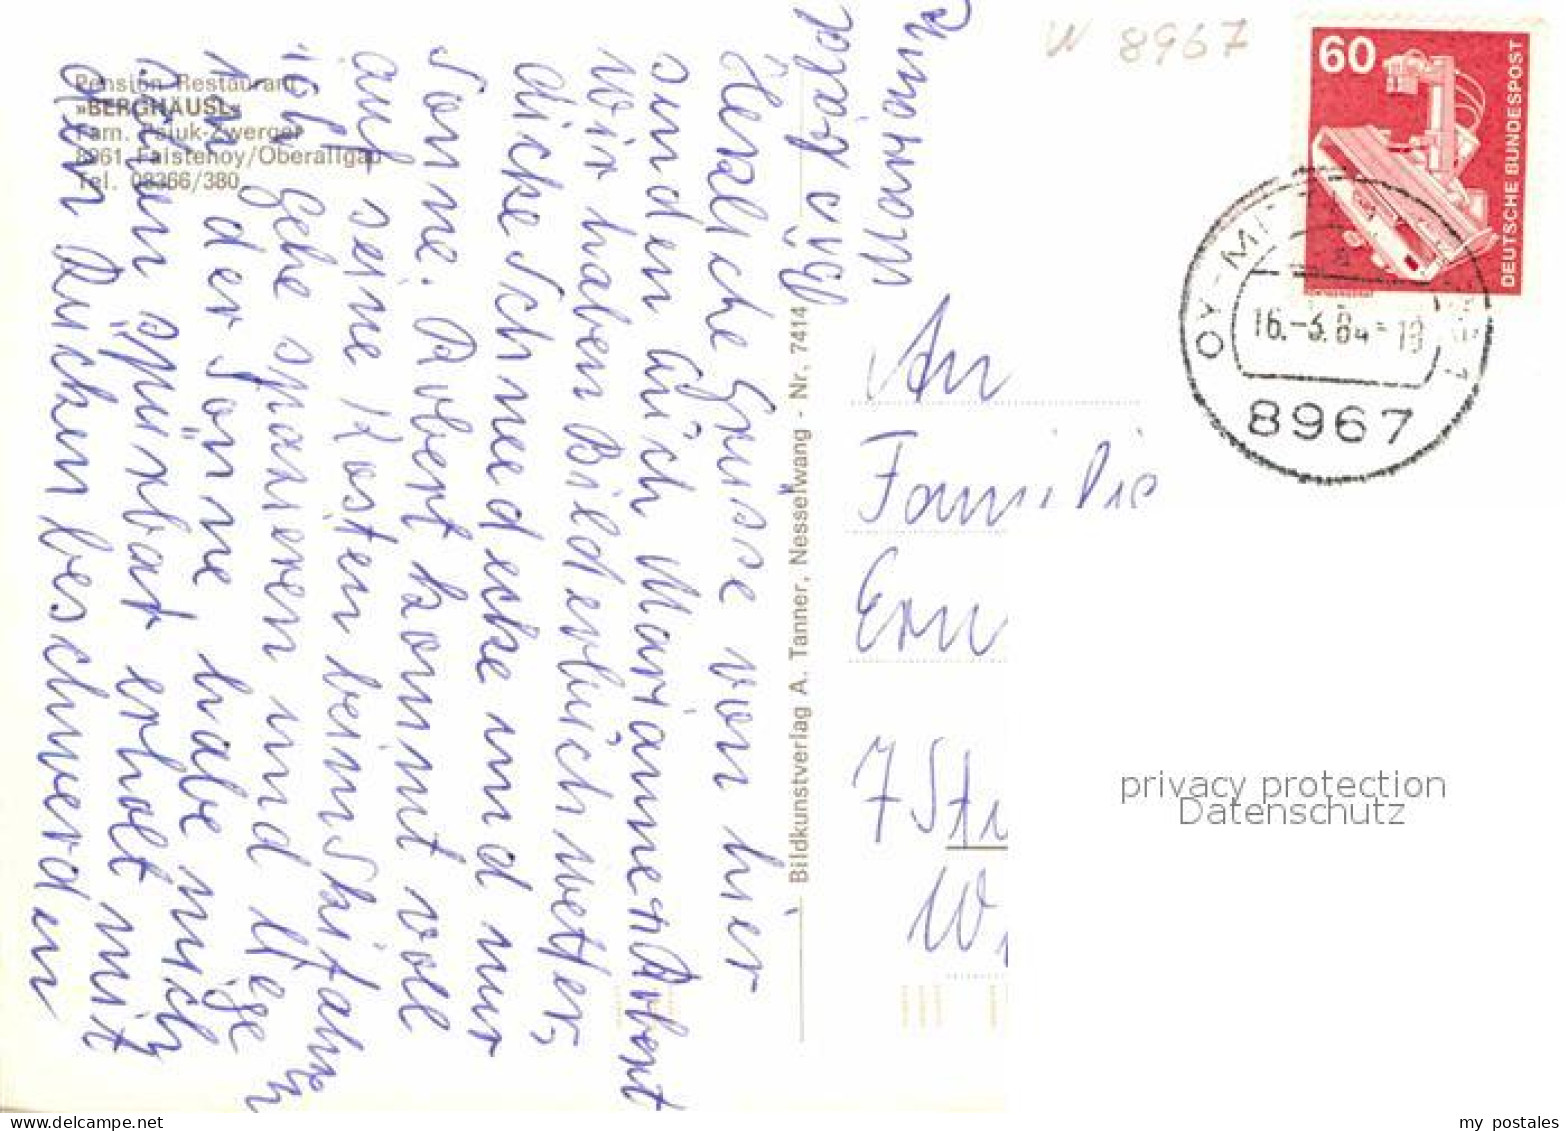 Pension-Restaurant
»BERGHÄUSL«
Fam. Pajuk-Zwerger
8961 Faistenoy/Oberallgäu
Tel. 08366/380
Herzliche Grüsse von hier
senden Euch Marianne u. Robert
Wir haben Bilderbuchwetter,
dicke Schneedecke und nur
Sonne. Robert kommt voll
auf seine Kosten beim Skifahren
ich gehe spazieren und liege
in der Sonne, habe mich
schon spürbar erholt mit
den Rückenbeschwerden
Bis bald
Marianne
Bildkunstverlag A. Tanner, Nesselwang - Nr. 7414
W 8967
60
DEUTSCHE BUNDESPOST
OY-MITTELBERG 1
16.-3.84-18
8967
An
Familie
Ern
7 St
W
privacy protection
Datenschutz
my postales